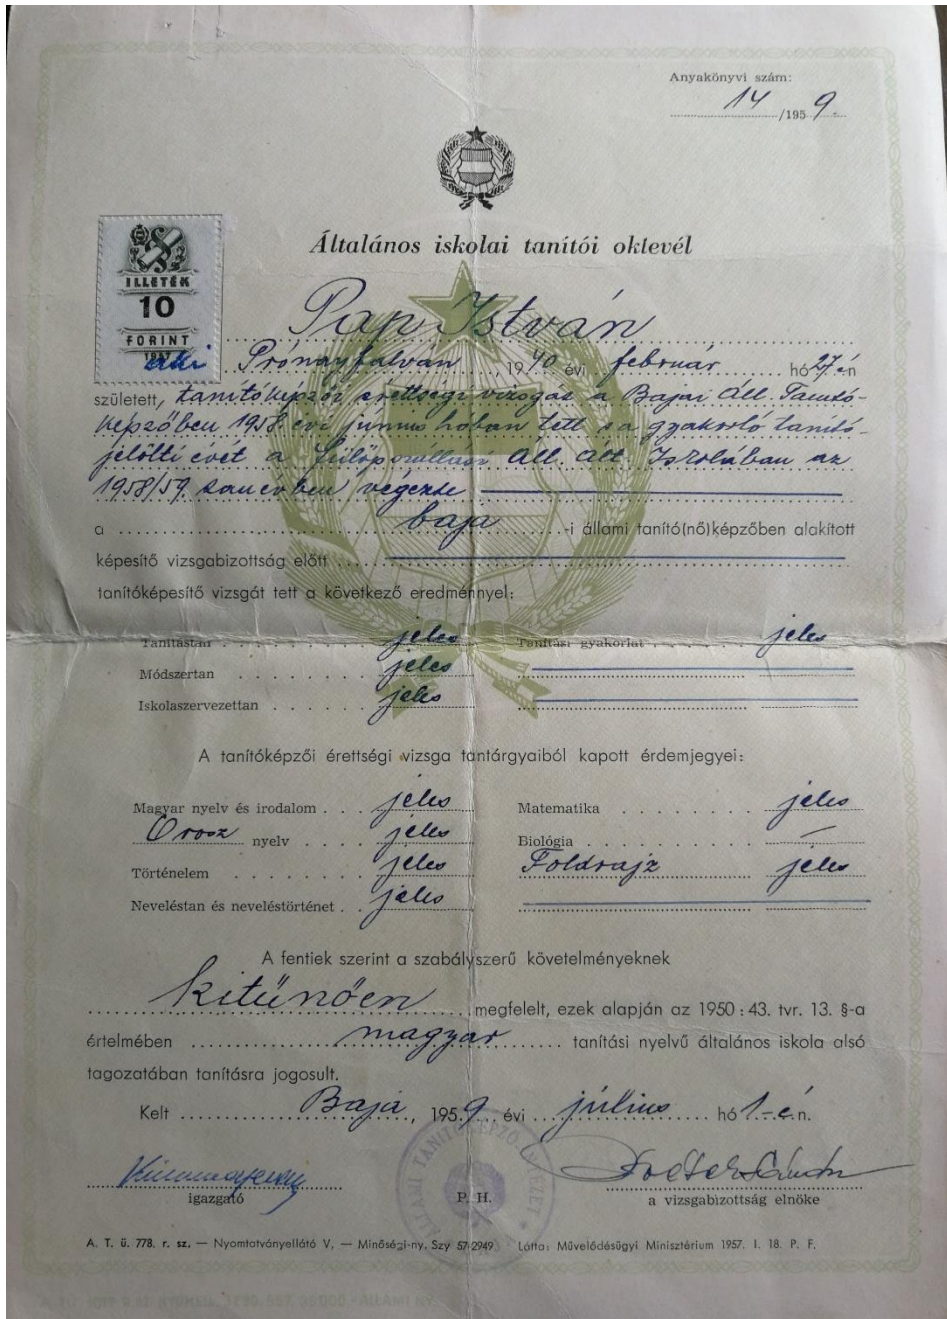 Anyakönyvi szám:
14/1959.
Általános iskolai tanítói oktevél
ILLETÉK
10
FORINT
1957
Pap István
aki Prónayfalván, 1940 évi február hó 27-én
született, tanítóképzői érettségi vizsgát a Bajai Áll. Tanító-
képzőben 1958. évi június hóban tett s a gyakorló tanító-
jelölti évét a fülöpszállási Áll. Ált. Iskolában az
1958/59. tanévben végezte
a baja-i állami tanító(nő)képzőben alakított
képesítő vizsgabizottság előtt
tanítóképesítő vizsgát tett a következő eredménnyel:
Tanítástan jeles Tanítási gyakorlat jeles
Módszertan jeles
Iskolaszervezettan jeles
A tanítóképzői érettségi vizsga tantárgyaiból kapott érdemjegyei:
Magyar nyelv és irodalom jeles Matematika jeles
Orosz nyelv jeles Biológia —
Történelem jeles Földrajz jeles
Neveléstan és neveléstörténet jeles
A fentiek szerint a szabályszerű követelményeknek
kitűnően megfelelt, ezek alapján az 1950:43. tvr. 13. §-a
értelmében magyar tanítási nyelvű általános iskola alsó
tagozatában tanításra jogosult.
Kelt Baja, 1959 évi július hó 1-én.
igazgató P. H. a vizsgabizottság elnöke
ÁLLAMI TANÍTÓKÉPZŐ
A. T. ü. 778. r. sz. — Nyomtatványellátó V. — Minőségi-ny. Szy 57-2949 Látta: Művelődésügyi Minisztérium 1957. I. 18. P. F.